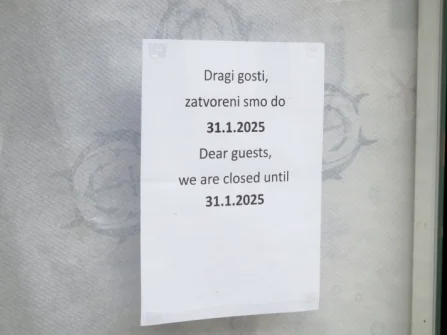 Dragi gosti,
zatvoreni smo do
31.1.2025
Dear guests,
we are closed until
31.1.2025